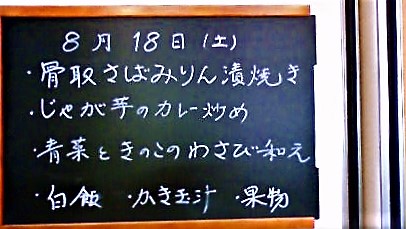 8月18日(土)
・骨取さばみりん漬焼き
・じゃが芋のカレー炒め
・青菜ときのこのわさび和え
・白飯 ・かき玉汁 ・果物